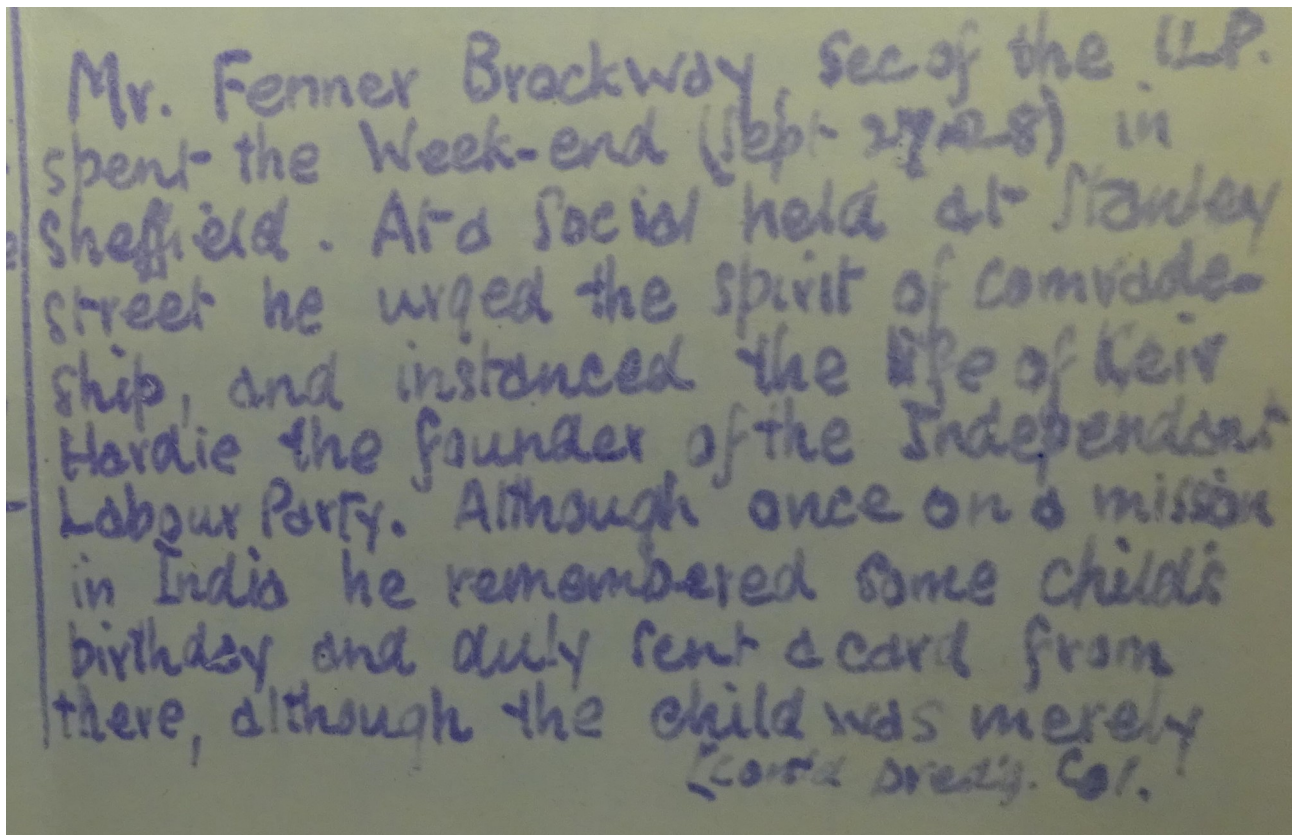 Mr. Fenner Brockway, Sec of the ILP.
spent the Week-end (Sept 27-28) in
Sheffield. At a Social held at Stanley
street he urged the spirit of comrade-
ship, and instanced the life of Keir
Hardie the founder of the Independant
Labour Party. Although once on a mission
in India he remembered some child's
birthday and duly sent a card from
there, although the child was merely
(cont'd preced'g. Col.